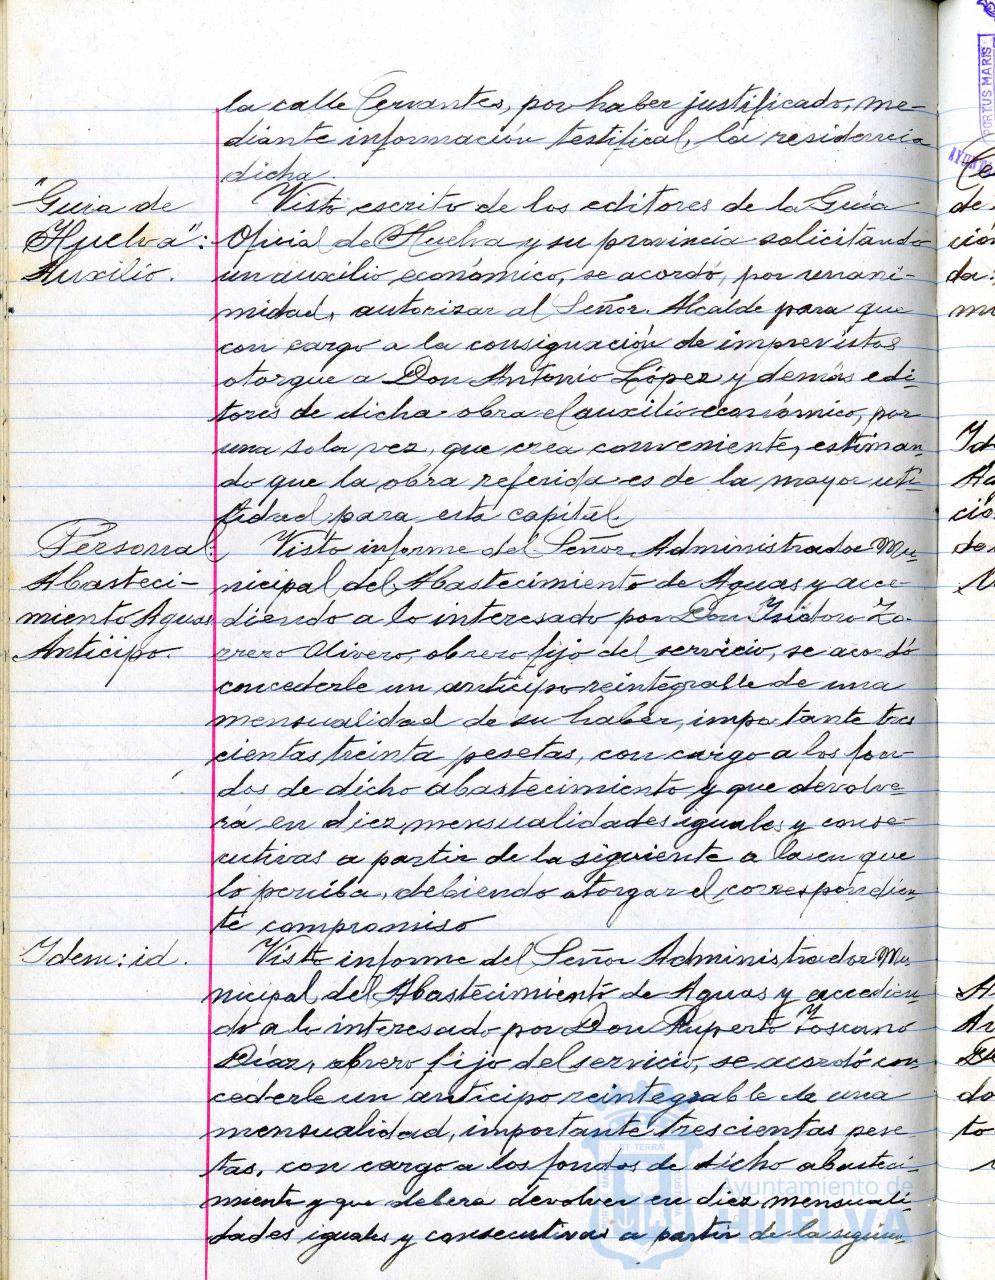 la calle Cervantes, por haber justificado, me-
diante información testifical, la residencia
dicha.
"Guia de
Huelva":
Auxilio.
Visto escrito de los editores de la Guía
Oficial de Huelva y su provincia solicitando
un auxilio económico, se acordó, por unani-
midad, autorizar al Señor Alcalde para que
con cargo a la consignación de imprevistos
otorgue a Don Antonio López y demás edi-
tores de dicha obra el auxilio económico, por
una sola vez, que crea conveniente, estiman-
do que la obra referida es de la mayor uti-
lidad para esta capital.
Personal:
Abasteci-
miento Aguas
Anticipo.
Visto informe del Señor Administrador Mu-
nicipal del Abastecimiento de Aguas y acce-
diendo a lo interesado por Don Isidoro Zo-
rrero Olivero, obrero fijo del servicio, se acordó
concederle un anticipo reintegrable de una
mensualidad de su haber, importante tres
cientas treinta pesetas, con cargo a los fon-
dos de dicho abastecimiento y que devolve-
rá en diez mensualidades iguales y conse-
cutivas a partir de la siguiente a la en que
lo perciba, debiendo otorgar el correspondien-
te compromiso
Idem: id.
Visto informe del Señor Administrador Mu-
nicipal del Abastecimiento de Aguas y accedien-
do a lo interesado por Don Ruperto Toscano
Díaz, obrero fijo del servicio, se acordó con-
cederle un anticipo reintegrable de una
mensualidad, importante trescientas pese-
tas, con cargo a los fondos de dicho abasteci-
miento y que deberá devolver en diez mensuali-
dades iguales y consecutivas a partir de la siguien-
PORTUS MARIS
ET TERRÆ
Ayuntamiento de
HUELVA